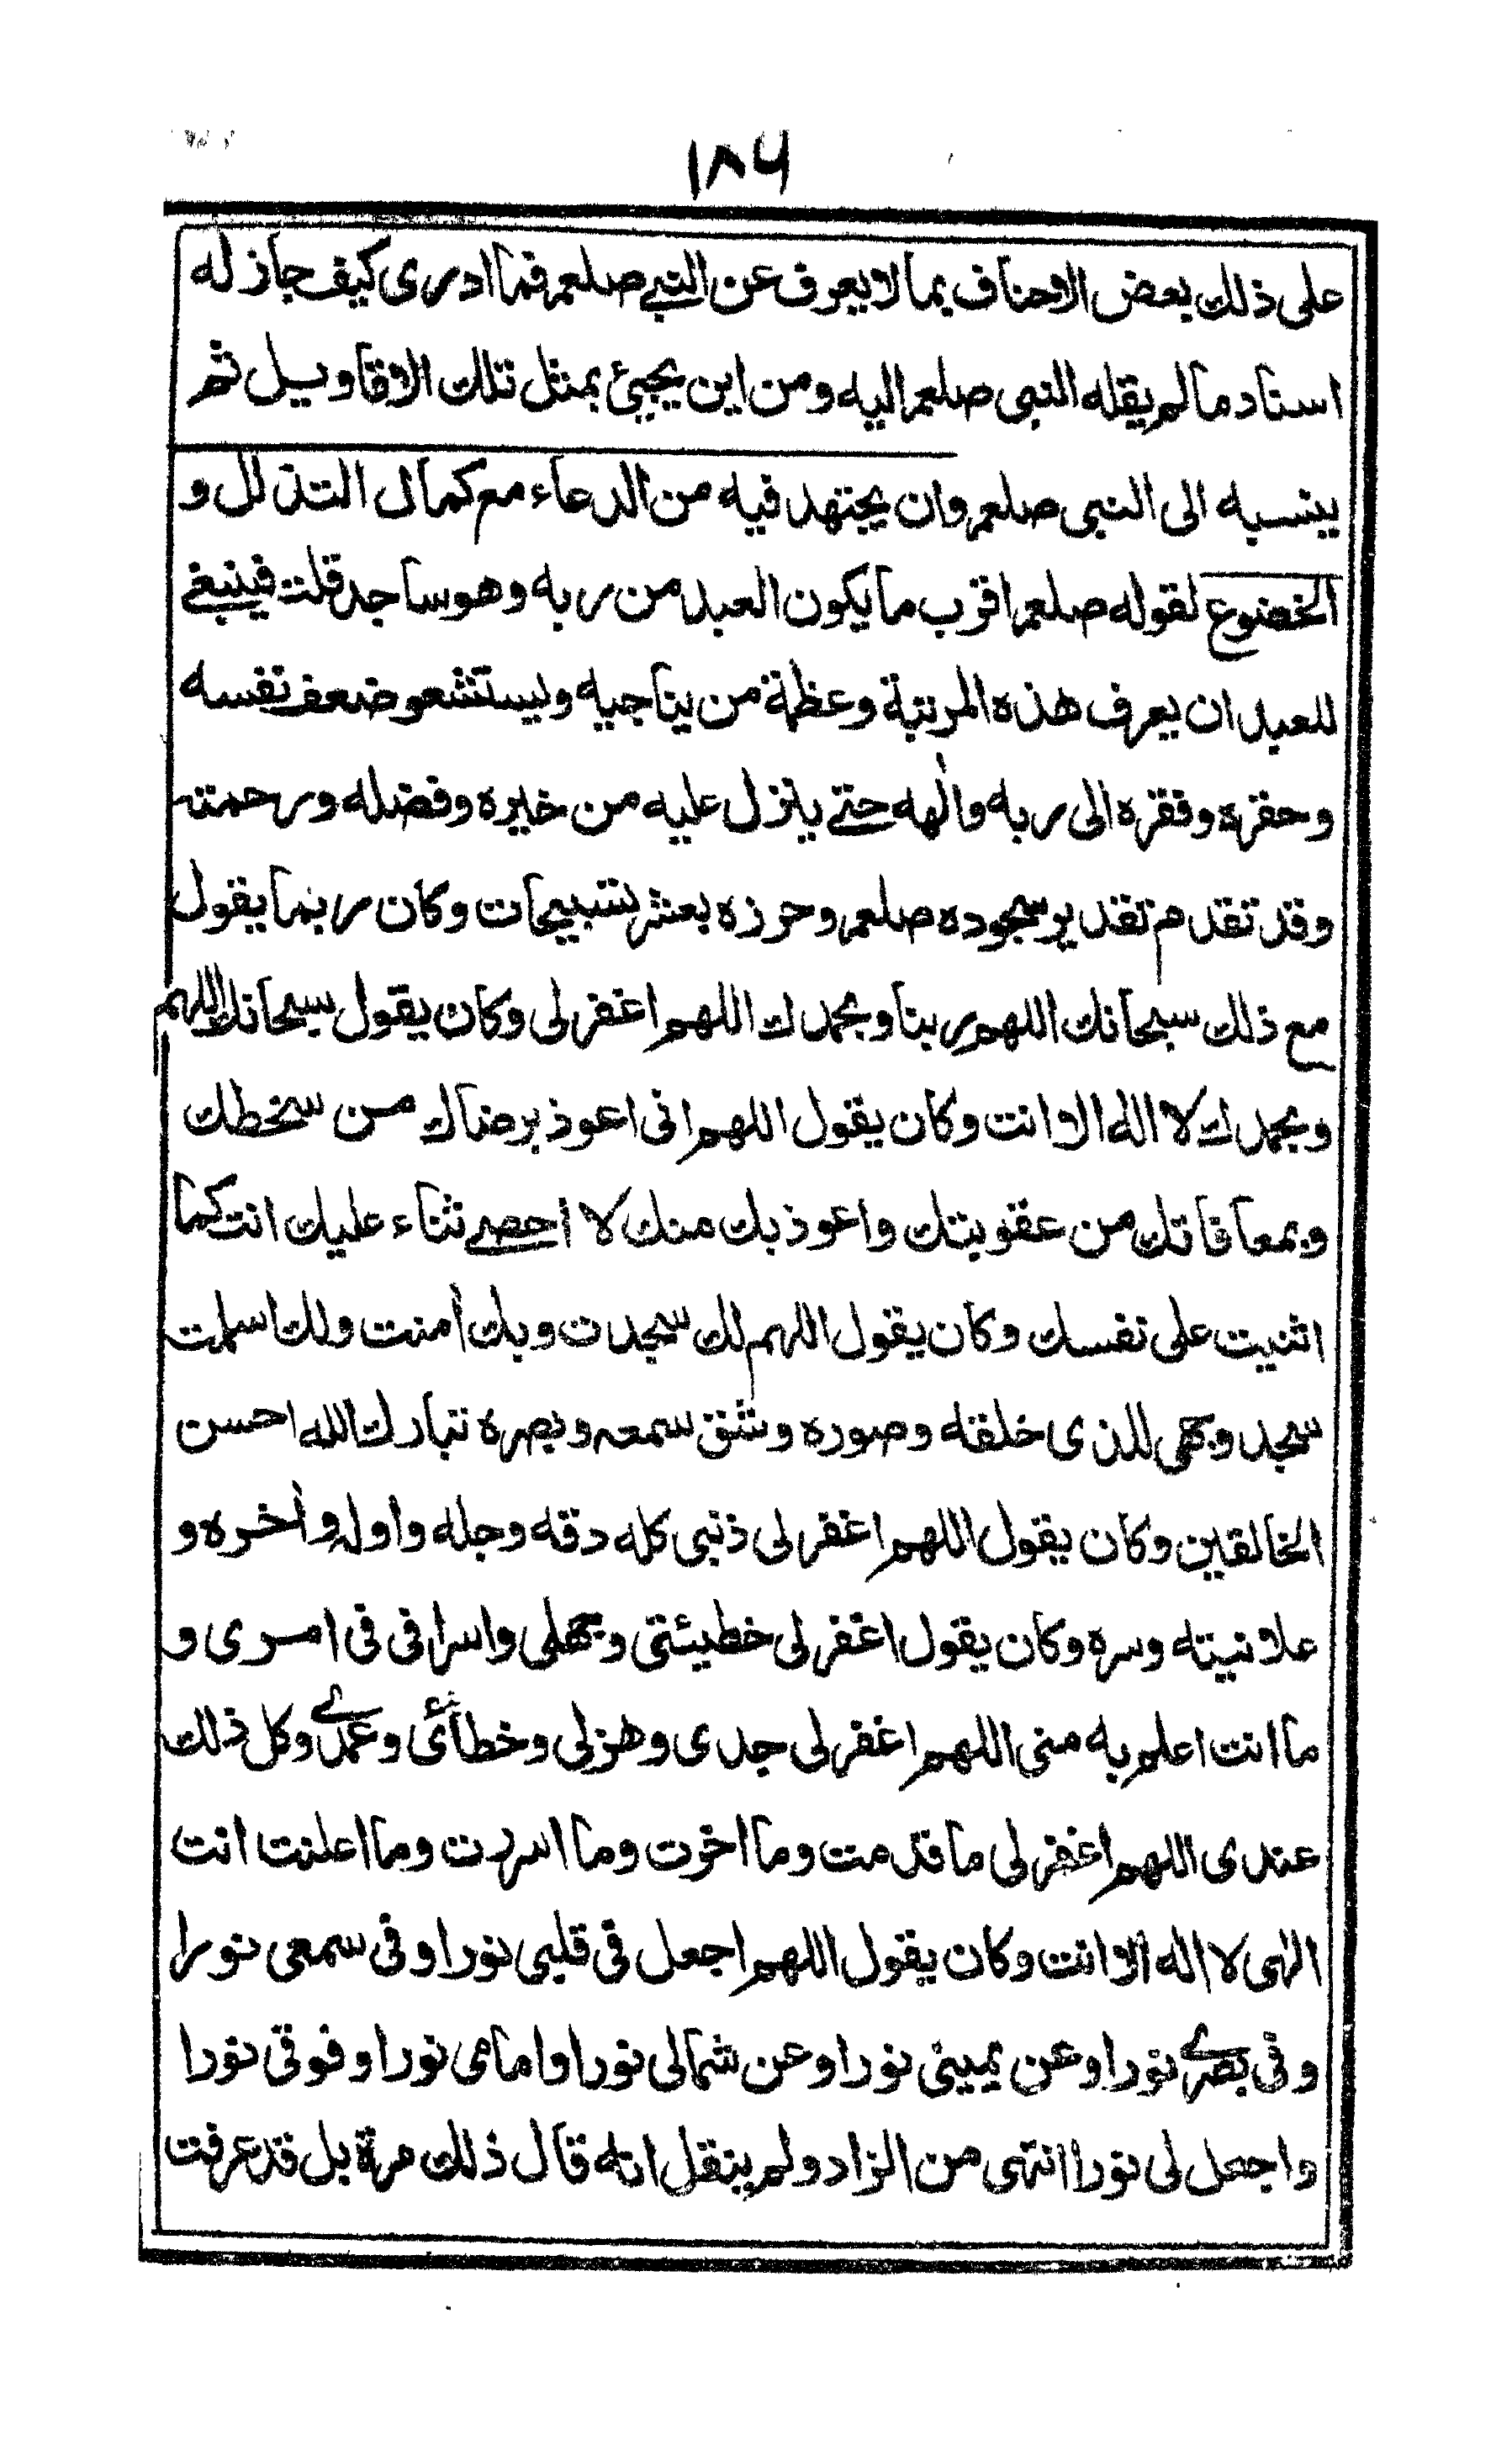 ١٨٦
على ذلك بعض الاحناف بما لا يعرف عن النبي صلعم فما ادرى كيف جاز له
اسناد ما لم يقله النبى صلعم اليه ومن اين يجيئ بمثل تلك الاقاويل ثم
ينسبه الى النبى صلعم وان يجتهد فيه من الدعاء مع كمال التذلل و
الخضوع لقوله صلعم اقرب ما يكون العبد من ربه وهو ساجد قلت فينبغے
للعبد ان يعرف هذه المرتبة وعظمة من يناجيه وليستشعر ضعف نفسه
وحقره وفقره الى ربه والٰهه حتے ينزل عليه من خيره وفضله ورحمته
وقد تقدم تقدير سجوده صلعم وحرزه بعشر تسبيحات وكان ربما يقول
مع ذلك سبحانك اللهم ربنا وبحمدك اللهم اغفر لى وكان يقول سبحانك اللهم
وبحمدك لا اله الا انت وكان يقول اللهم انى اعوذ برضاك من سخطك
وبمعافاتك من عقوبتك واعوذ بك منك لا احصے ثناء عليك انت كما
اثنيت على نفسك وكان يقول اللهم لك سجدت وبك اٰمنت ولك اسلمت
سجد وجهى للذى خلقه وصوره وشق سمعه وبصره تبارك الله احسن
الخالقين وكان يقول اللهم اغفر لى ذنبى كله دقه وجله واوله واٰخره و
علانيته وسره وكان يقول اغفر لى خطيئتى وجهلى واسرافى فى امرى و
ما انت اعلم به منى اللهم اغفر لى جدى وهزلى وخطائى وعمدے وكل ذلك
عندى اللهم اغفر لى ما قدمت وما اخرت وما اسررت وما اعلنت انت
الهى لا اله الا انت وكان يقول اللهم اجعل فى قلبى نورا وفى سمعى نورا
وفى بصرے نورا وعن يمينى نورا وعن شمالى نورا وامامى نورا وفوقى نورا
واجعل لى نورا انتهى من الزاد ولم ينقل انه قال ذلك مرة بل قد عرفت